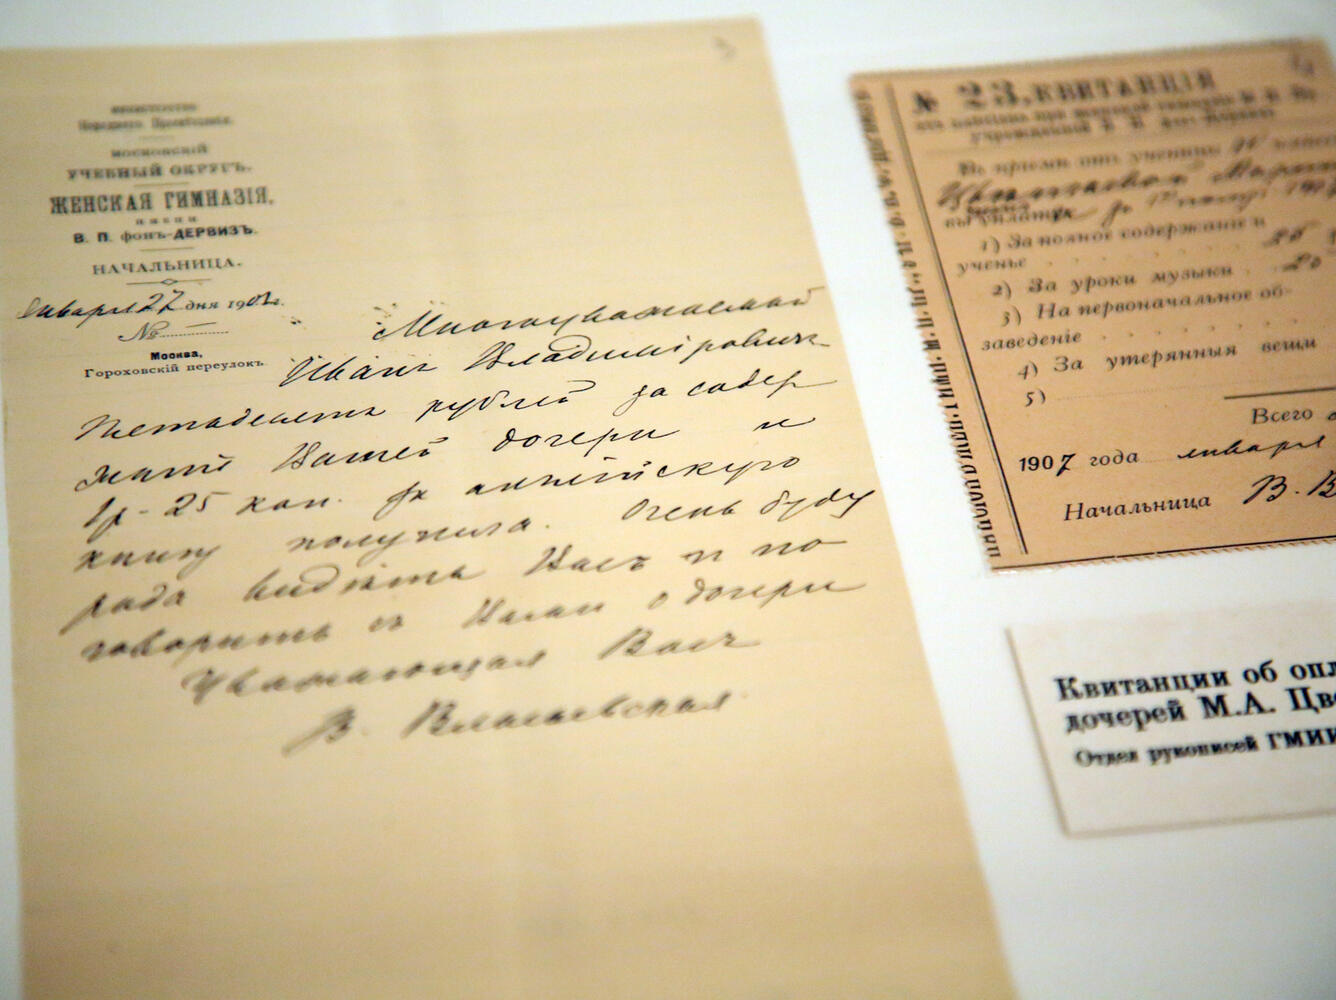 МИНИСТЕРСТВО
Народнаго Просвѣщенія.
МОСКОВСКІЙ
УЧЕБНЫЙ ОКРУГЪ.
ЖЕНСКАЯ ГИМНАЗІЯ,
имени
В. П. фонъ-ДЕРВИЗЪ.
НАЧАЛЬНИЦА.
Января 27 дня 1907 г.
№
Москва,
Гороховскій переулокъ.
Многоуважаемый
Иванъ Владиміровичъ
Пятьдесятъ рублей за содер
жаніе Вашей дочери и
1р - 25 коп. за англійскую
книгу получила. Очень буду
рада видѣть Васъ и по
говорить съ Вами о дочери
Уважающая Васъ
В.
№ 23. КВИТАНЦІЯ
Въ пріемѣ отъ ученицы
Цвѣтаевой Марины
1) За полное содержаніе и
ученье
2) За уроки музыки
3) На первоначальное об-
заведеніе
4) За утерянныя вещи
5)
Всего
1907 года января
Начальница В. В
Квитанции об опл
дочерей М.А. Цве
Отдел рукописей ГМИИ